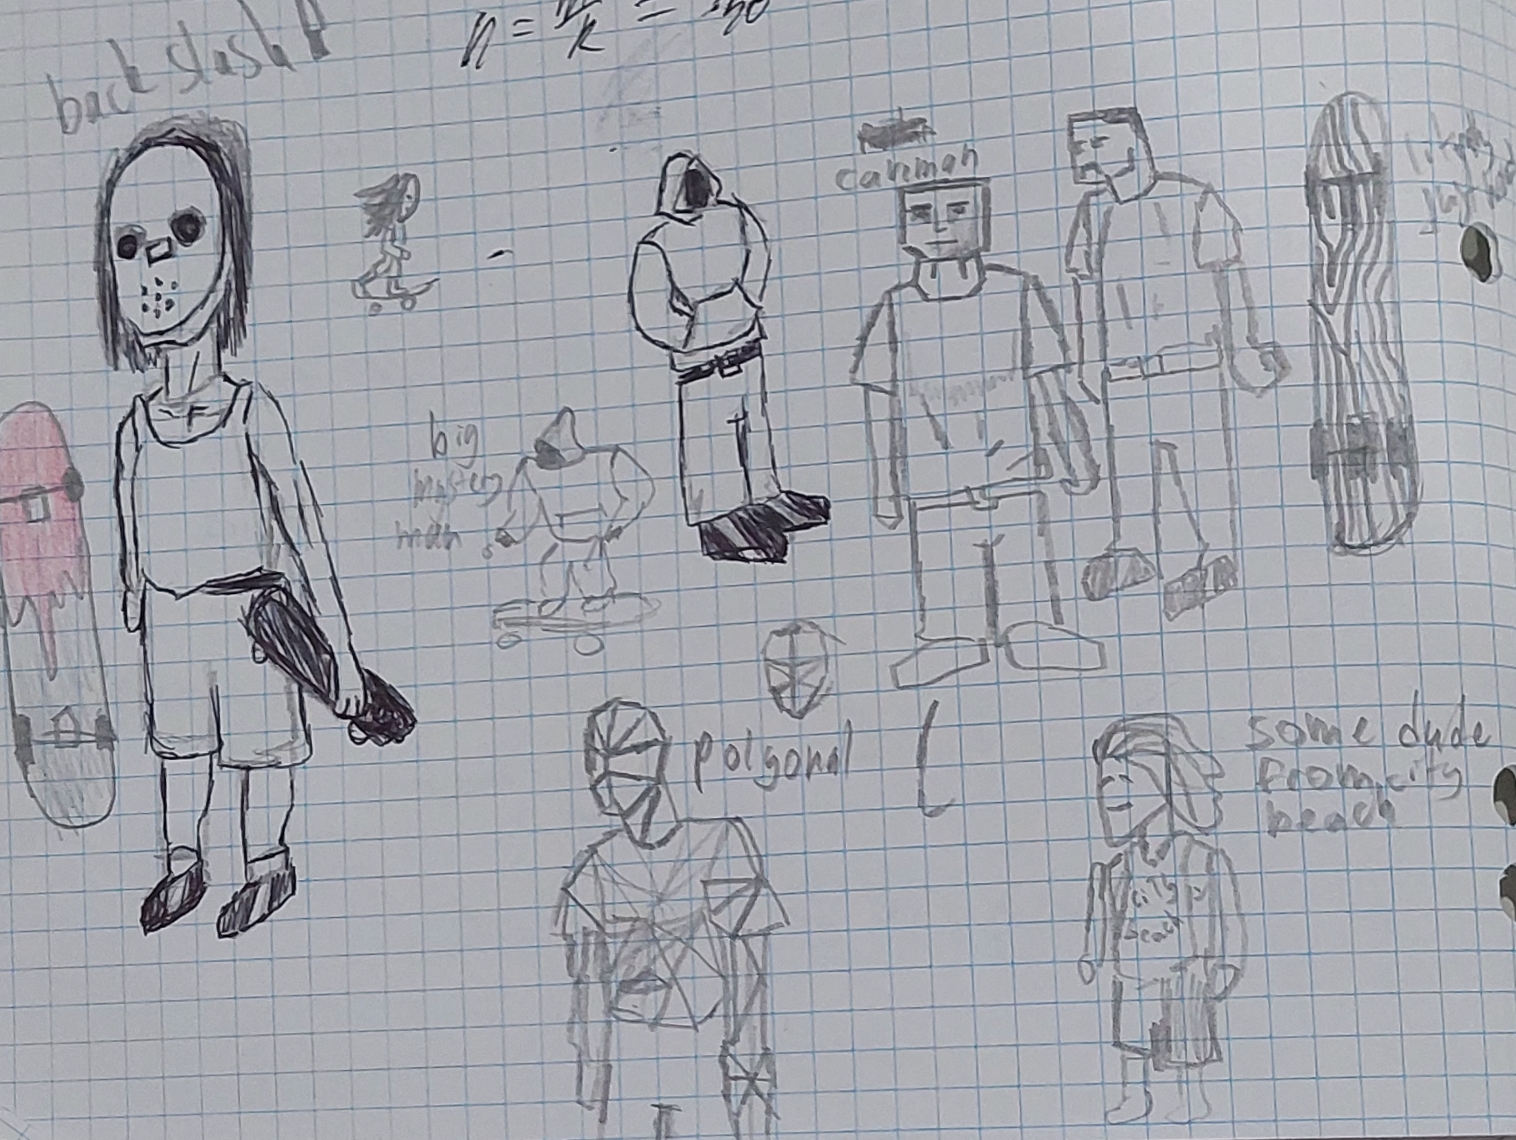 back slash
n = 
canman
big
mystery
man
polgonal
some dude
from city
beach
city
beach